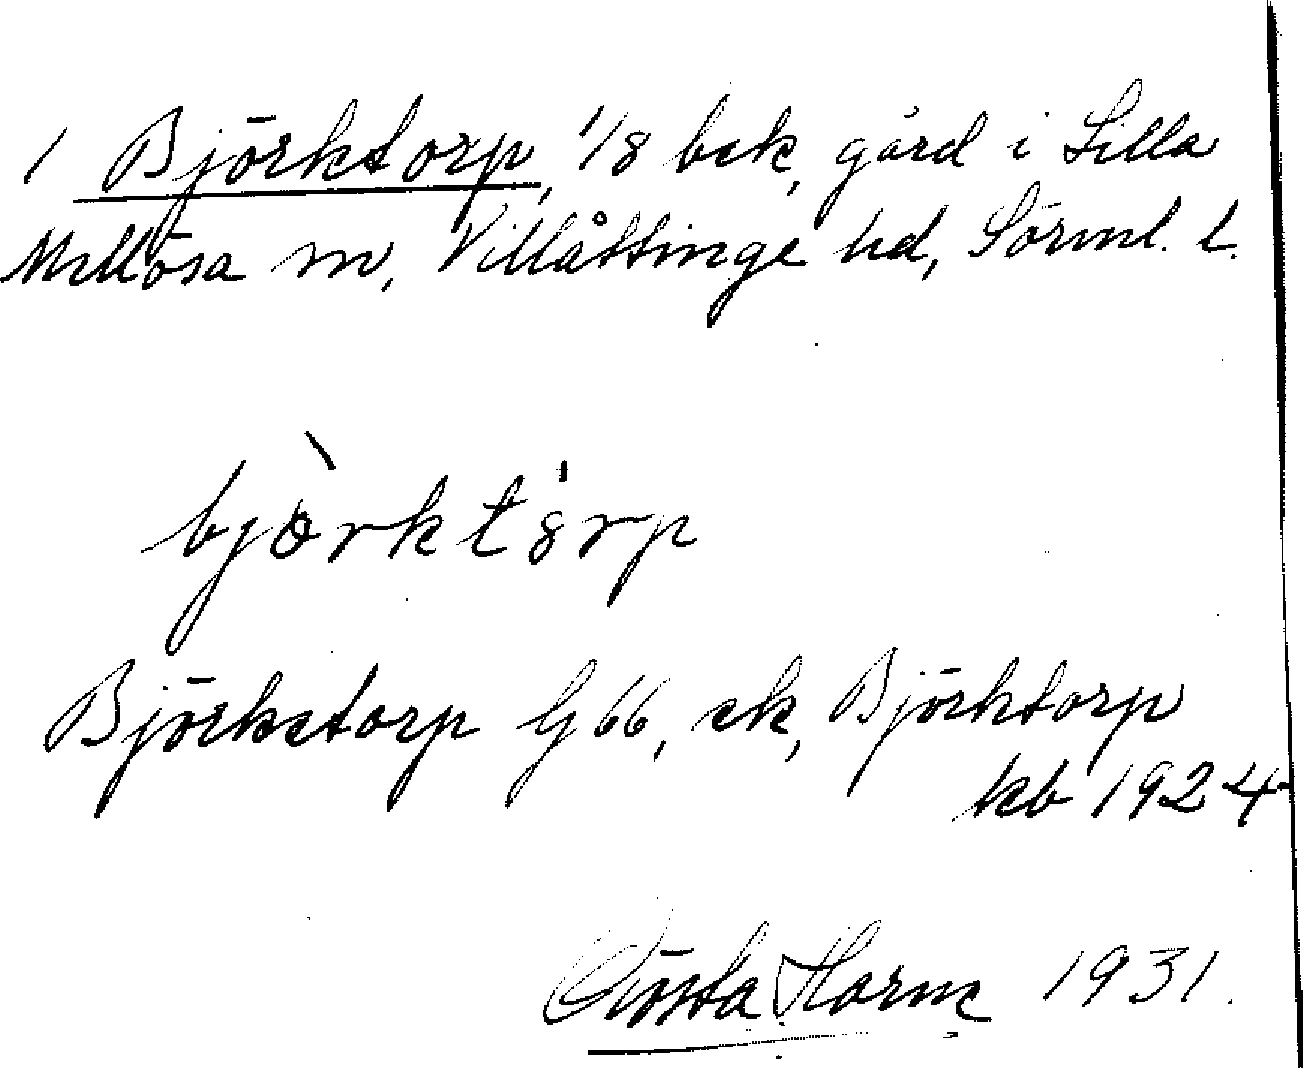 1 Björktorp, 1/8 bek, gård i Lilla
Mellösa sn, Villåttinge hd, Sörml. l.
bjòrktórp
Björketorp G 66, ek, Björktorp
kb 1924
Gösta Horne 1931.